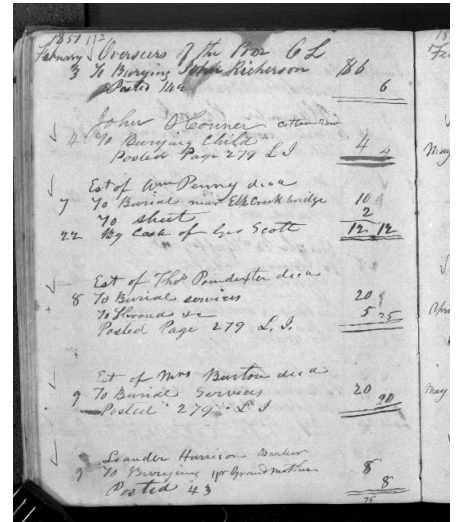 1851 112
February Overseers of the Poor C L
3 To Burying John Richerson 186 6
Posted 142
John O'Conner Cotton Row
4 To Burying Child 4 4
Posted Page 279 L. I
Est of Wm Penny decd
7 To Burial near Elk Creek bridge 10
To sheet 2
22 By Cash of Geo Scott 12 12
Est of Thos Poundexter decd
8 To Burial services 20
To Shroud &c 5 25
Posted Page 279 L. I.
Est of Mrs Burton decd
9 To Burial Services 20 20
Posted 279 L I
Leander Harrison Barber
9 To Burying yor Grand Mother 8 8
Posted 43
75
May
May